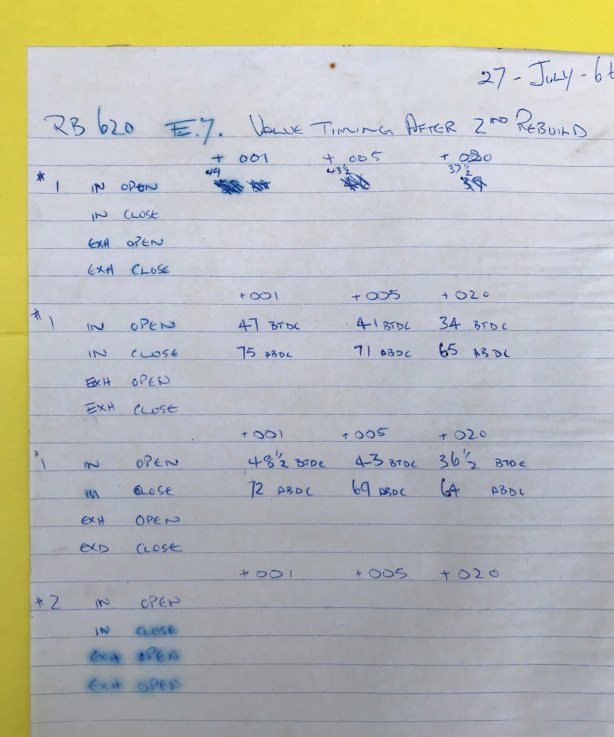 27 - JULY - 6
RB 620 E.7. VALVE TIMING AFTER 2ND REBUILD
+ 001 + 005 + 020
49 43½ 37½
#1 IN OPEN
IN CLOSE
EXH OPEN
EXH CLOSE
+001 +005 +020
#1 IN OPEN 47 BTDC 41 BTDC 34 BTDC
IN CLOSE 75 ABDC 71 ABDC 65 ABDC
EXH OPEN
EXH CLOSE
+001 +005 +020
#1 IN OPEN 48½ BTDC 43 BTDC 36½ BTDC
IN CLOSE 72 ABDC 69 ABDC 64 ABDC
EXH OPEN
EXD CLOSE
+001 +005 +020
#2 IN OPEN
IN CLOSE
EXH OPEN
EXH OPEN